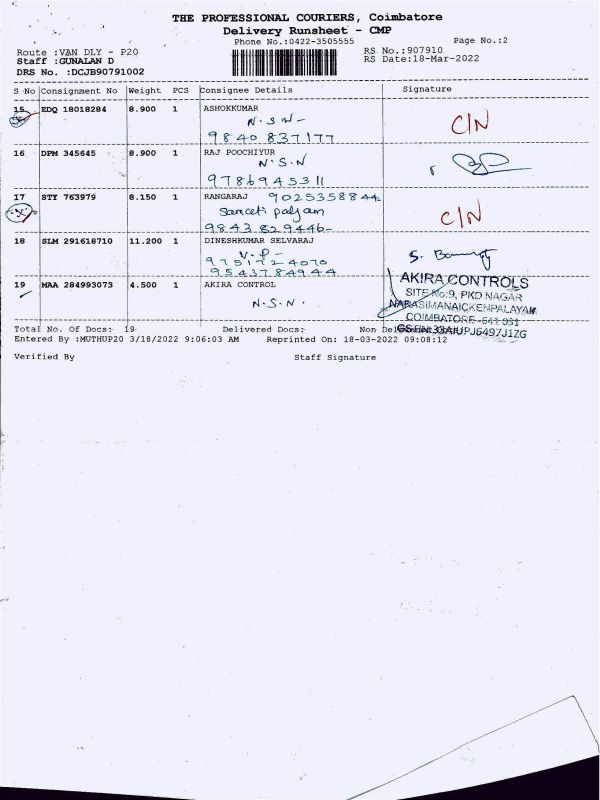 THE PROFESSIONAL COURIERS, Coimbatore
Delivery Runsheet - CMP
Phone No.:0422-3505555 Page No.:2
Route :VAN DLY - P20 RS No.:907910
Staff :GUNALAN D RS Date:18-Mar-2022
DRS No. :DCJB90791002
S No Consignment No Weight PCS Consignee Details Signature
15 EDQ 18018284 8.900 1 ASHOKKUMAR
N.S.N- C/N
9840 837177
16 DPM 345645 8.900 1 RAJ POOCHIYUR
N.S.N
9786945311
17 STY 763979 8.150 1 RANGARAJ 9025358844
C/N
9843829446-
18 SLM 291618710 11.200 1 DINESHKUMAR SELVARAJ
V.P-
9751724070
9543784944
19 MAA 284993073 4.500 1 AKIRA CONTROL
N.S.N.
AKIRA CONTROLS
SITE No:9, PKD NAGAR
NARASIMANAICKENPALAYAM
COIMBATORE-641 031
Total No. Of Docs: 19 Delivered Docs: Non
Entered By :MUTHUP20 3/18/2022 9:06:03 AM Reprinted On: 18-03-2022 09:08:12
Verified By Staff Signature